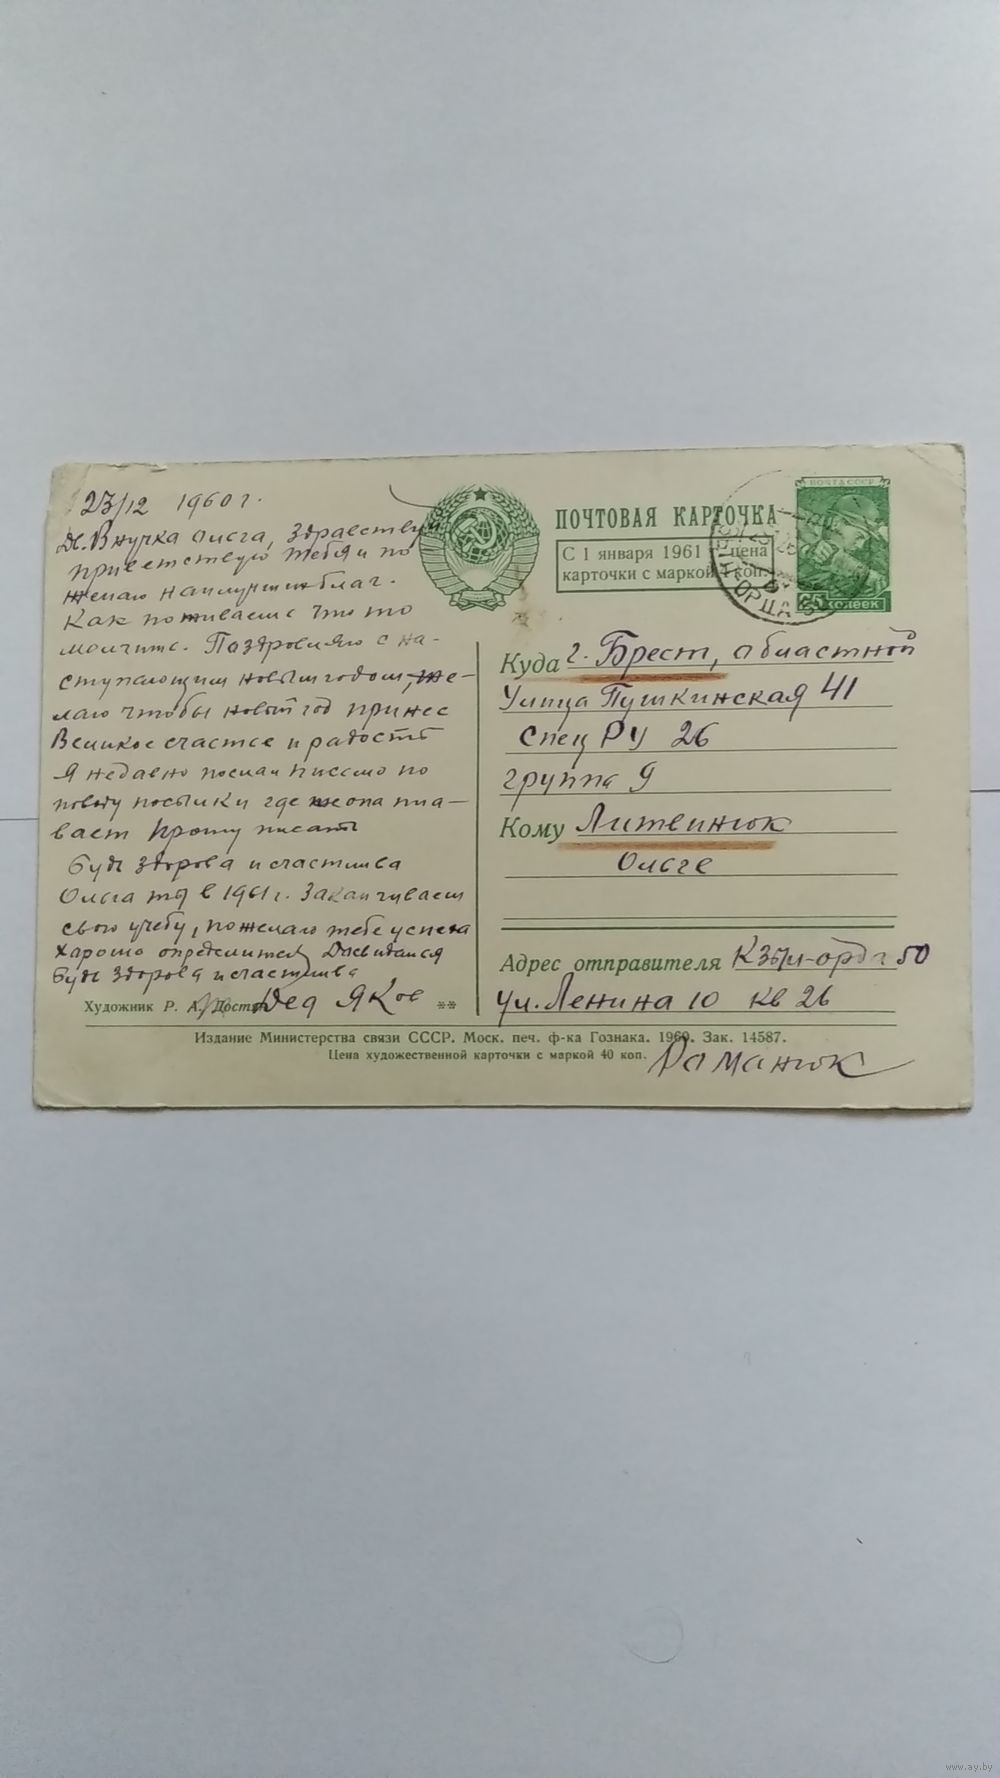 23/12 1960 г.
Внучка Ольга, здравствуй
приветствую тебя и по
желаю наилучших благ.
Как поживаеш что то
молчите. Поздровляю с на-
ступающим новым годом, же-
лаю чтобы новый год принес
Великое счастье и радость
Я недавно послал письмо по
поводу посылки где она пла-
вает прошу писать
будь здорова и счастлива
Ольга ты в 1961 г. Заканчиваеш
свою учебу, пожелаю тебе успеха
Харошо определится Дасвидания
будь здорова и счастлива
Дед Яков
Художник Р. А. **
ПОЧТОВАЯ КАРТОЧКА
С 1 января 1961 г. цена
карточки с маркой 4 коп.
ПОЧТА СССР
25 КОПЕЕК
Куда г. Брест, областной
Улица Пушкинская 41
Спец РУ 26
группа 9
Кому Литвинюк
Ольге
Адрес отправителя Кзыл-орда 50
ул. Ленина 10 кв 26
Издание Министерства связи СССР. Моск. печ. ф-ка Гознака. 1960. Зак. 14587.
Цена художественной карточки с маркой 40 коп.
Романюк
www.ay.by